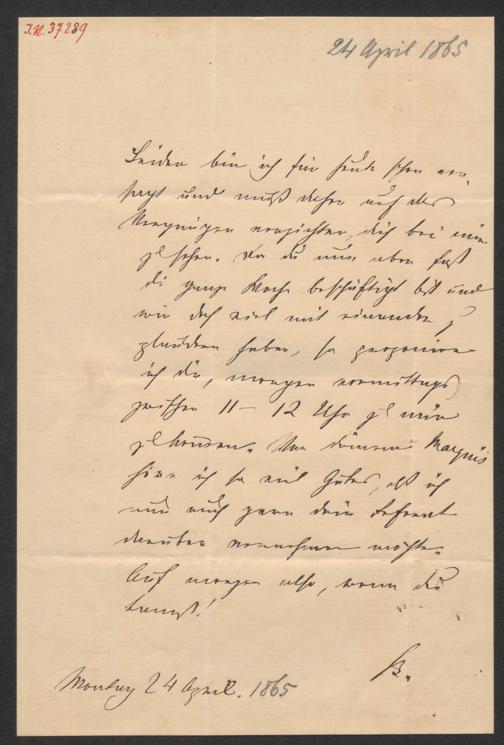 I.N. 37289
24 April 1865
Leider bin ich für heute schon ver-
sagt und muß daher auf das
Vergnügen verzichten, dich bei mir
zu sehen. Da du nun aber fast
die ganze Woche beschäftigt bist und
wir doch viel mit einander zu
plaudern haben, so proponire
ich dir, morgen vormittags
zwischen 11 – 12 Uhr zu mir
zu kommen. Von deinem Marquis
höre ich so viel Gutes, daß ich
nun auch gern dein Referat
darüber vernehmen möchte.
Auf morgen also, wenn du
kannst!
B.
Montag 24 April. 1865